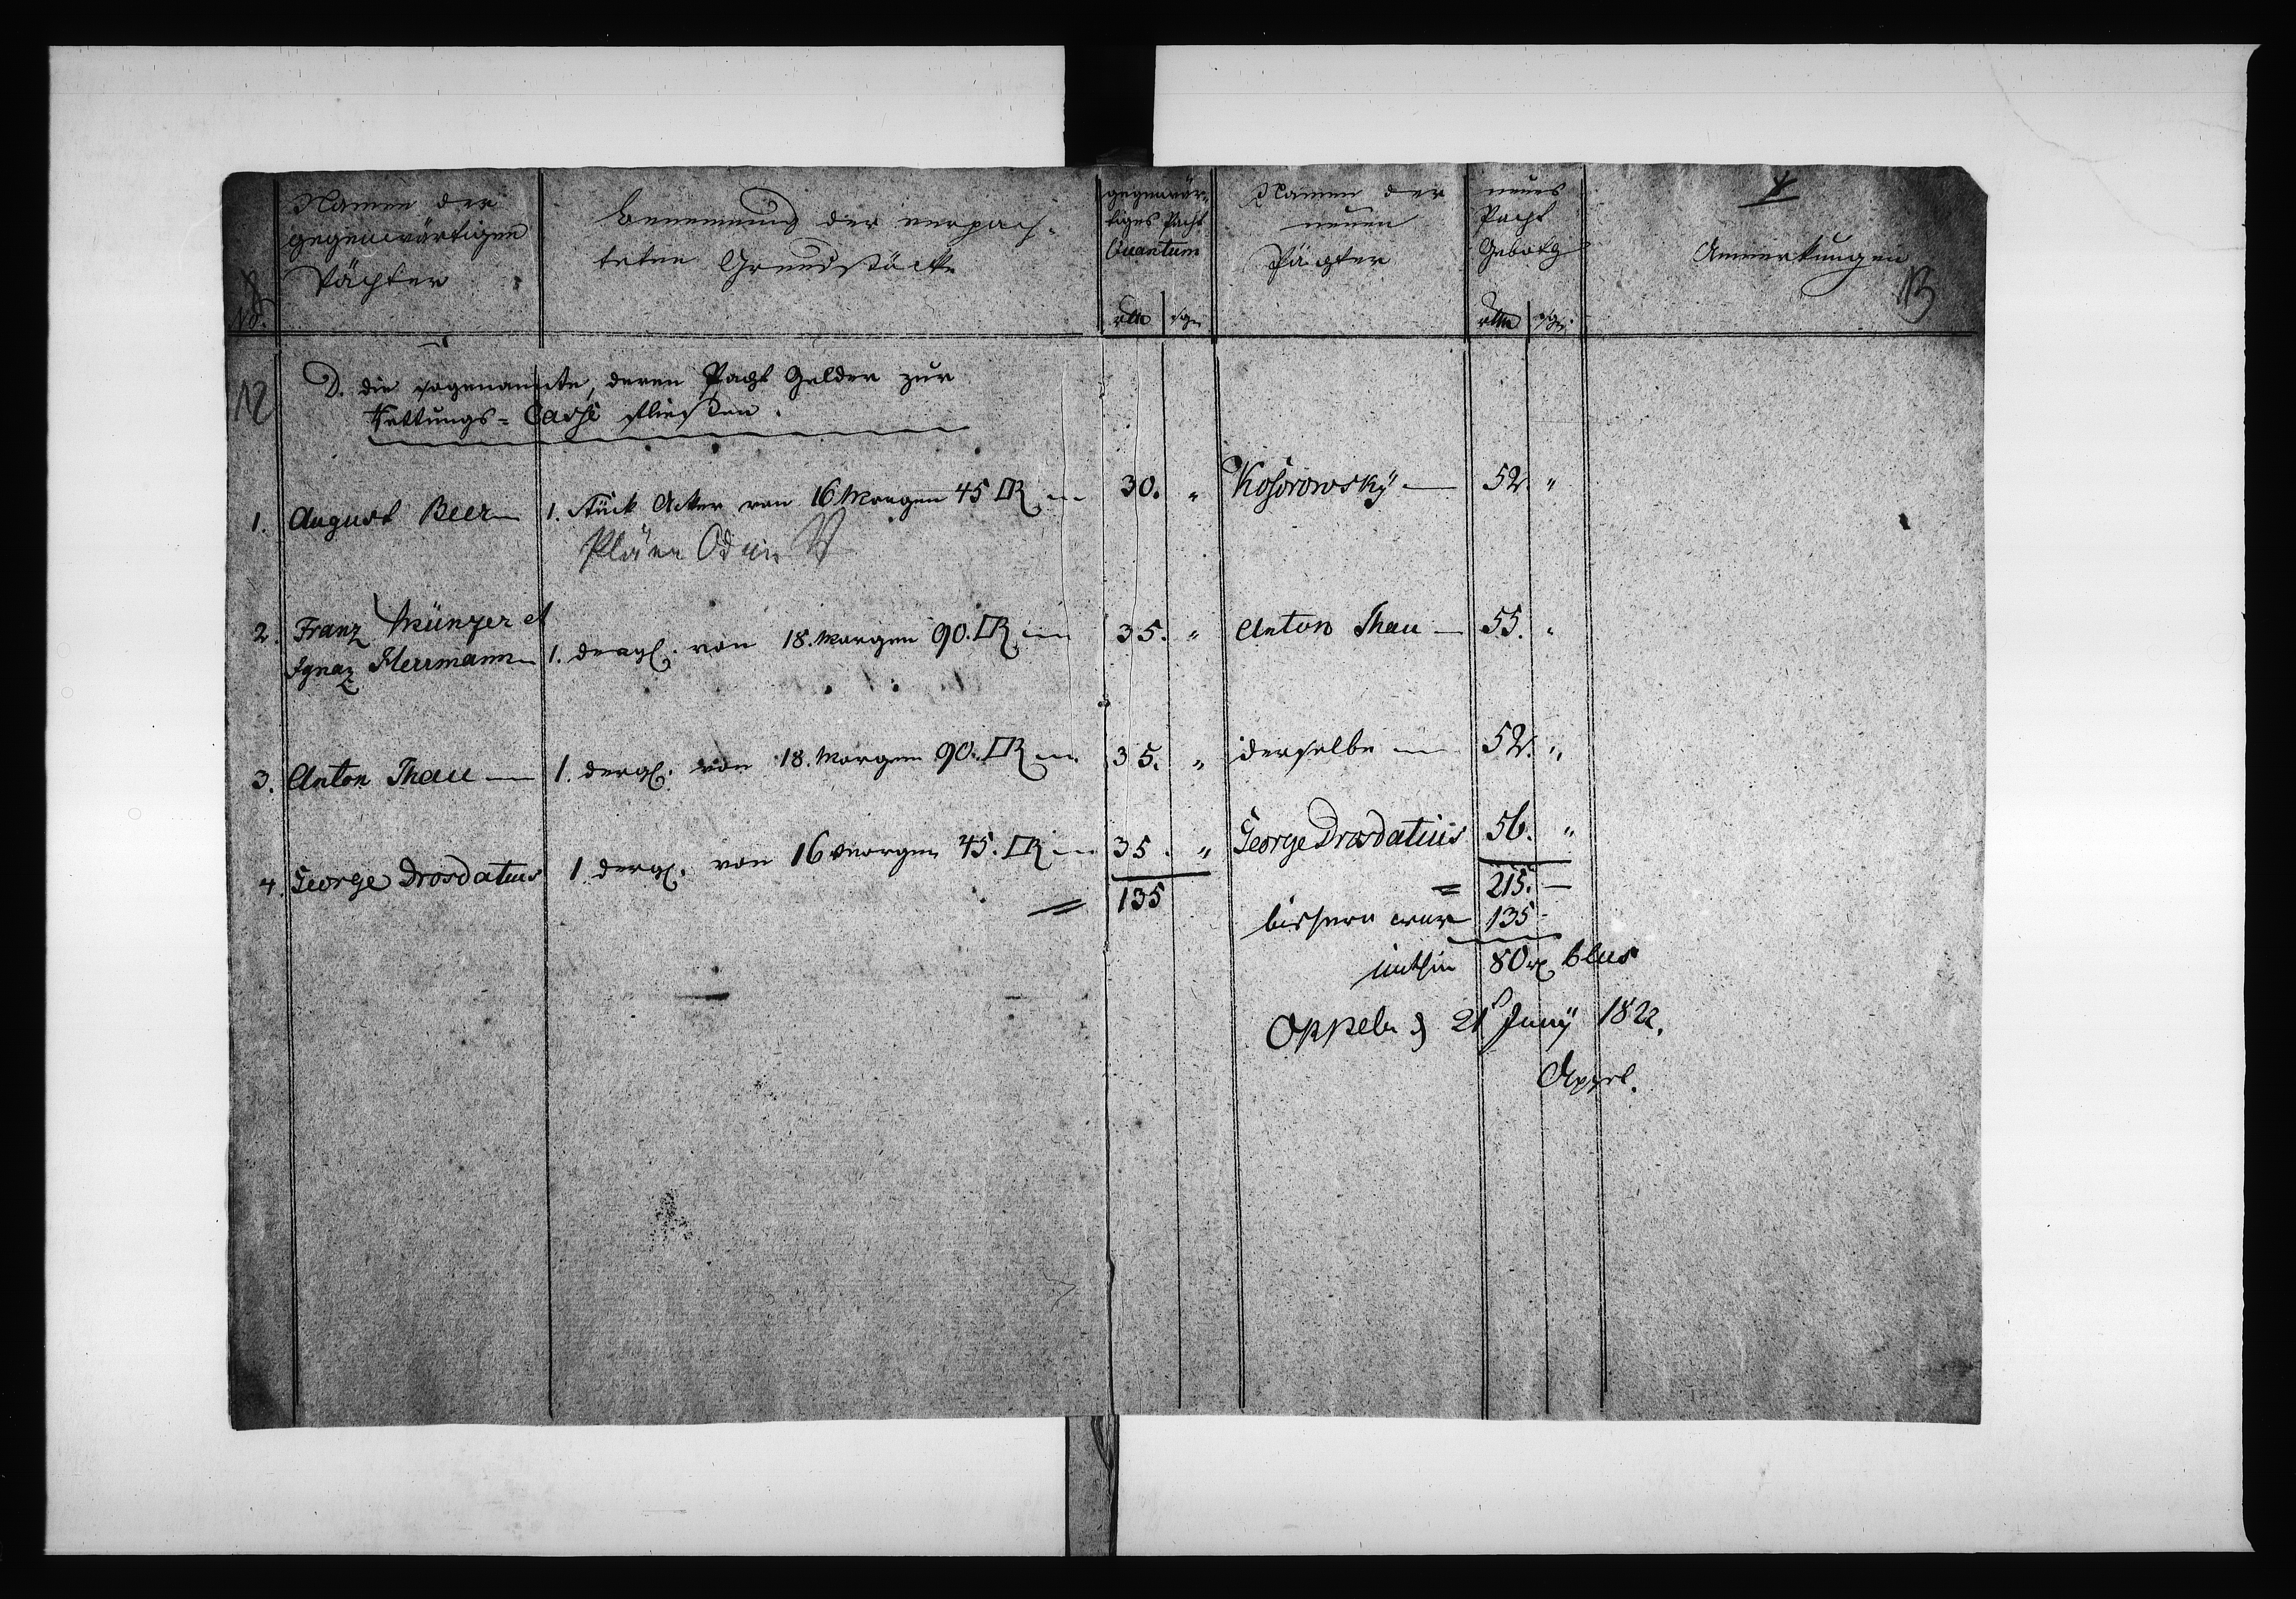 Namen der
gegenwärtigen
Pächter
No.
Benennung der verpach-
teten Grundstücke
gegenwär-
tiges Pacht
Quantum
rtlr sgr
Namen der
neuen
Pächter
neues
Pacht
Geboth
rtlr sgr
Anmerkungen
12
13
D. die sogenannte, deren Pacht Gelder zur
Rettungs-Casse fließen.
1. August Beer 1. Stück Acker von 16 Morgen 45 □R 30. " Kosorowsky 52. "
2. Franz Münzer et
Ignaz Herrmann 1. dergl. von 18. Morgen 90. □R 35. " Anton Thau 55. "
3. Anton Thau 1. dergl. von 18. Morgen 90. □R 35. " derselbe 52. "
4. George Drosdatius 1 dergl. von 16 Morgen 45. □R 35. " George Drosdatius 56. "
= 135 = 215. —
bishero war 135 -
mithin 80 r plus
Oppeln d 21t Juny 1822.
Appel.